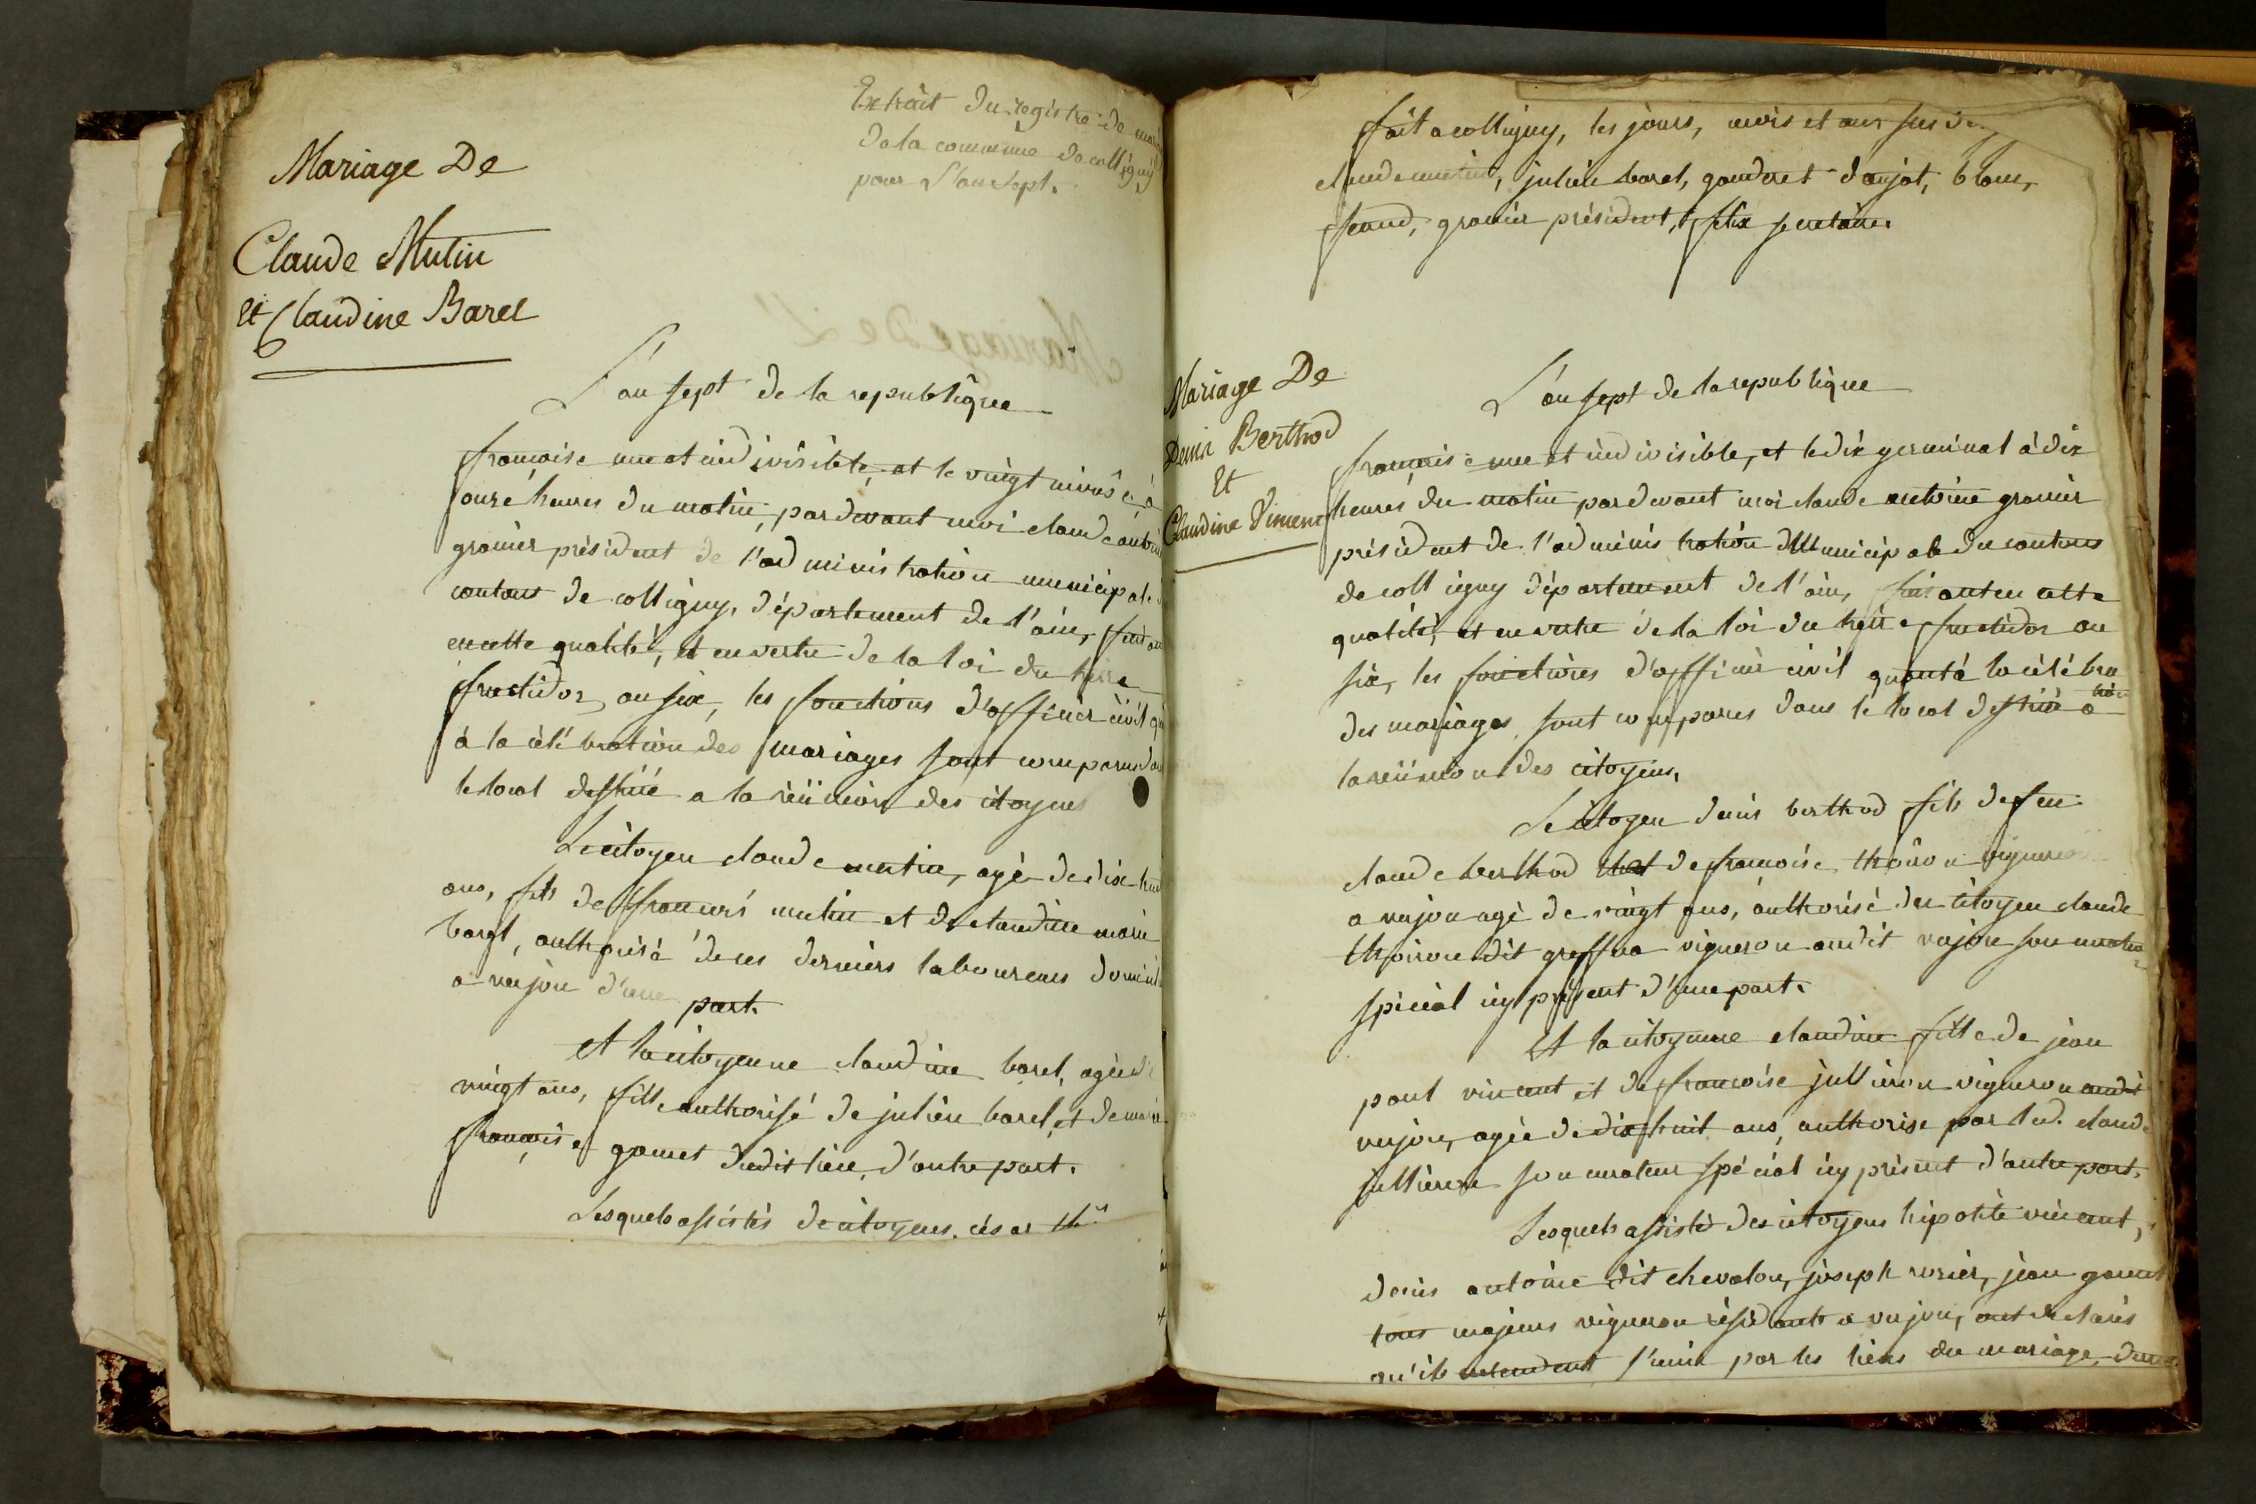 Extrait du registre de
de la commune de colligny
pour L'an sept.
Mariage De
Claude Mutin
Et Claudine Barel
L'an sept de la republîque
francoise une et indivisible, et le vingt nivôse à
onze heures du matin, pardevant moi claude
granier président de l'administration municipale
contons de colligny, département de l'ain,
en cette qualité, et en vertu de la loi du treize
fructidor an six, les fonctions d'officier civil
à la célébration des mariages sont comparus
le local destiné a la réünion des citoyens
Le citoyen claude mutin, agé de dix huit
ans, fils de francois mutin et de claudine marie
barel, authorisé de ces derniers laboureurs
a verjon d'une part.
et la citoyenne claudine barel, agée de
vingt ans, fille authorisé de julien barel, et de marie
françoise gamet dudit lieu, d'autre part.
Lesquels assistés de citoyens. césar
fait a colligny, les jours, mois et ans sus
claude mutin, julien barel, gaudret danjat,
granier président, felix secretaire.
Mariage De
Denis Berthod
Et
Claudine Vincent
L'an sept de la republique
française une et indivisible, et le dix germinal à dix
heures du matin pardevant moi claude antoine granier
président de l'administration Municipale du contons
de colligny département de l'ain, faisant en cette
qualité, et en vertu de la loi du treize fructidor an
six, les fonctions d'officier civil quant à la célébra
tion
des mariages sont comparus dans le local destiné a
la reünion des citoyens.
Le citoyen denis berthod fils de feu
claude berthod et de francoise thoiron vigneron
a verjon agé de vingt ans, authorisé du citoyen claude
thoiron dit greffna vigneron audit verjon son curateur
spécial icy présent d'une part.
Et la citoyenne claudine fille de jean
paul vincent et de francoise jullieron vigneron audit
verjon, agée de dix huit ans, authorise par led. claude
jullieron son curateur spécial icy présent d'autre part.
Lesquels assisté des citoyens hipolite vincent,
denis antoine dit chevalon, joseph rosier, jean gamet
tous majeurs vigneron résidants a verjon, ont declarés
qu'ils entendent s'unir par les liens du mariage,